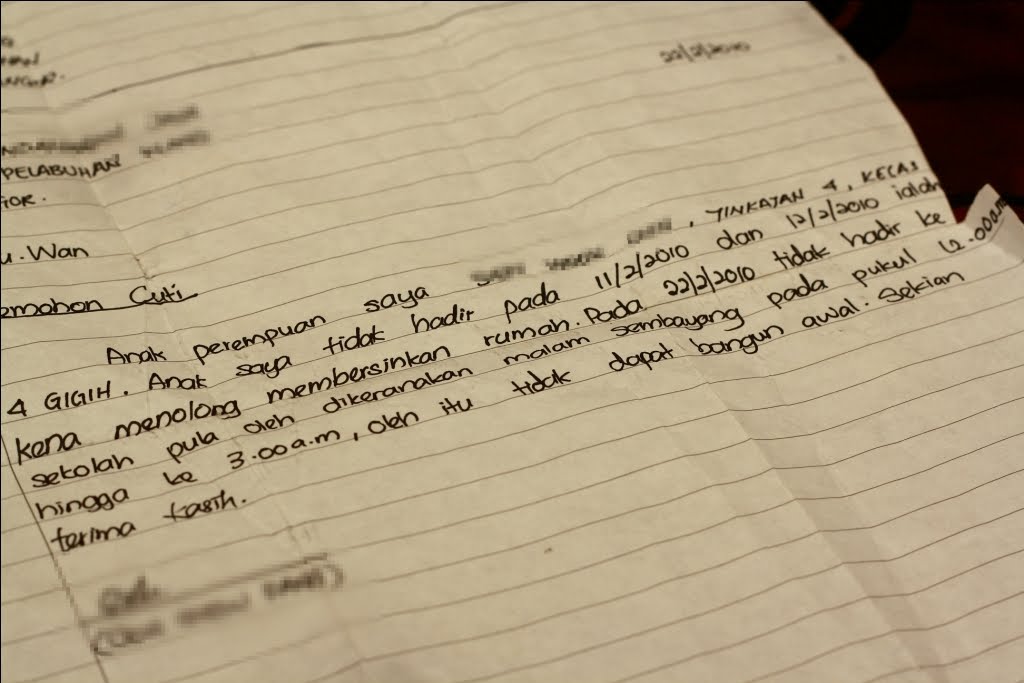 22/2/2010
PELABUHAN
u. Wan
emohon Cuti
Anak perempuan saya , TINKATAN 4, KELAS
4 GIGIH. Anak saya tidak hadir pada 11/2/2010 dan 12/2/2010 ialah
kena menolong membersinkan rumah. Pada 22/2/2010 tidak hadir ke
sekolah pula oleh dikeranakan malam sembayang pada pukul 12.00a.m
hingga ke 3.00a.m, oleh itu tidak dapat bangun awal. Sekian
terima kasih.